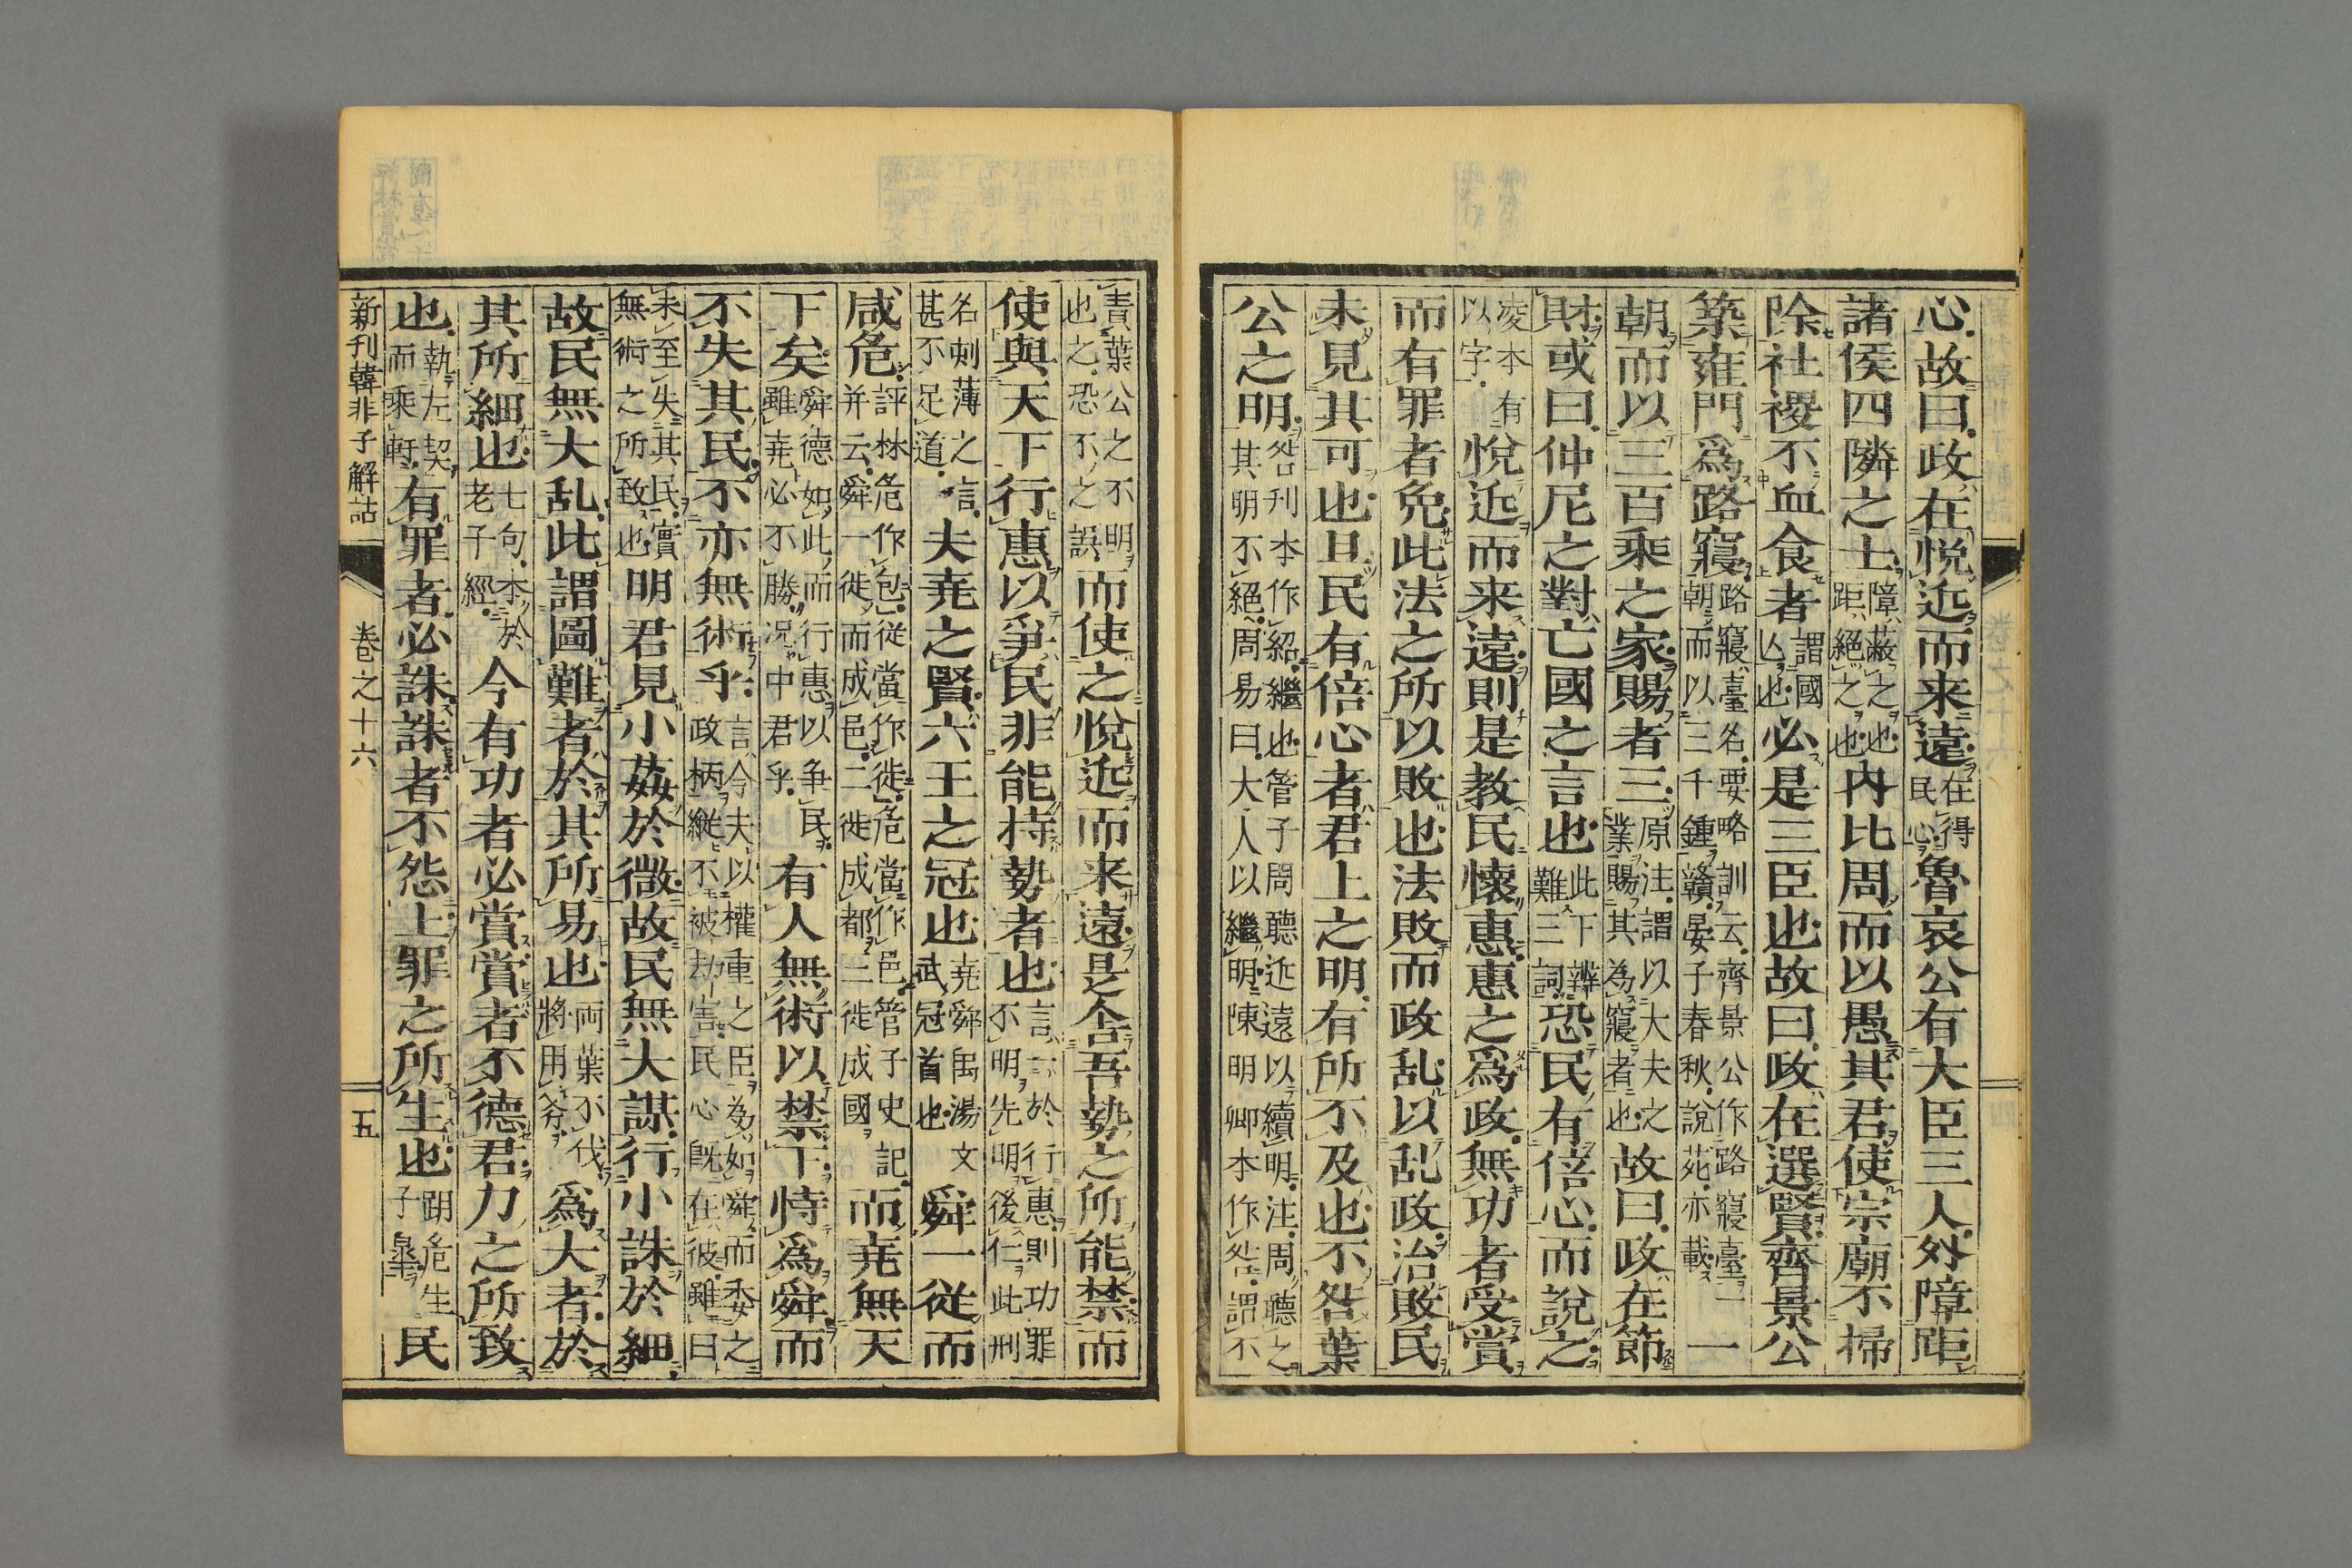 心故曰政在悦近而来遠在得民心魯哀公有大臣三人外障距
諸侯四隣之士障蔽之也距絶之也内比周而以愚其君使宗廟不掃
除社稷不血食者謂國亾也必是三臣也故曰政在選賢齊景公
築雍門爲路寢路寢臺名要略訓云齊景公作路寢臺一朝而以三千鍾贛晏子春秋說苑亦載一
朝而以三百乘之家賜者三原注謂以大夫之業賜其為寢者也故曰政在節
財或曰仲尼之對亡國之言也此下辨難三詞恐民有倍心而說之
凌本有以字悦近而来遠則是教民懷惠惠之爲政無功者受賞
而有罪者免此法之所以敗也法敗而政乱以乱政治敗民
未見其可也且民有倍心者君上之明有所不及也不咎葉
公之明咎刋本作紹繼也管子問聽近遠以續明注周聽之其明不絶周易曰大人以繼明陳明卿本作咎謂不
責葉公之不明也之恐不之誤而使之悦近而来遠是舎吾勢之所能禁而
使與天下行惠以爭民非能持勢者也言一於行惠則功罪不明先明後仁此刑
名刺薄之言甚不足道夫堯之賢六王之冠也堯舜禹湯文武冠首也舜一從而
咸危評林危作包從當作徙危當作邑管子史記并云舜一徙而成邑二徙成都三徙成國而堯無天
下矣舜德如此而行惠以争民雖堯必不勝况中君乎有人無術以禁下恃爲舜而
不失其民不亦無術乎言今夫以權重之臣為如舜而委之政柄縱不被劫害民心既在彼雖曰
未至失其民實無術之所致也明君見小姦於微故民無大謀行小誅於細
故民無大乱此謂圖難者於其所易也兩葉不伐將用斧爲大者於
其所細也七句本於老子經今有功者必賞賞者不德君力之所致
也執左契而乘軒有罪者必誅誅者不怨上罪之所生也跀危生子臯民
新刊韓非子解詁 卷之十六 五